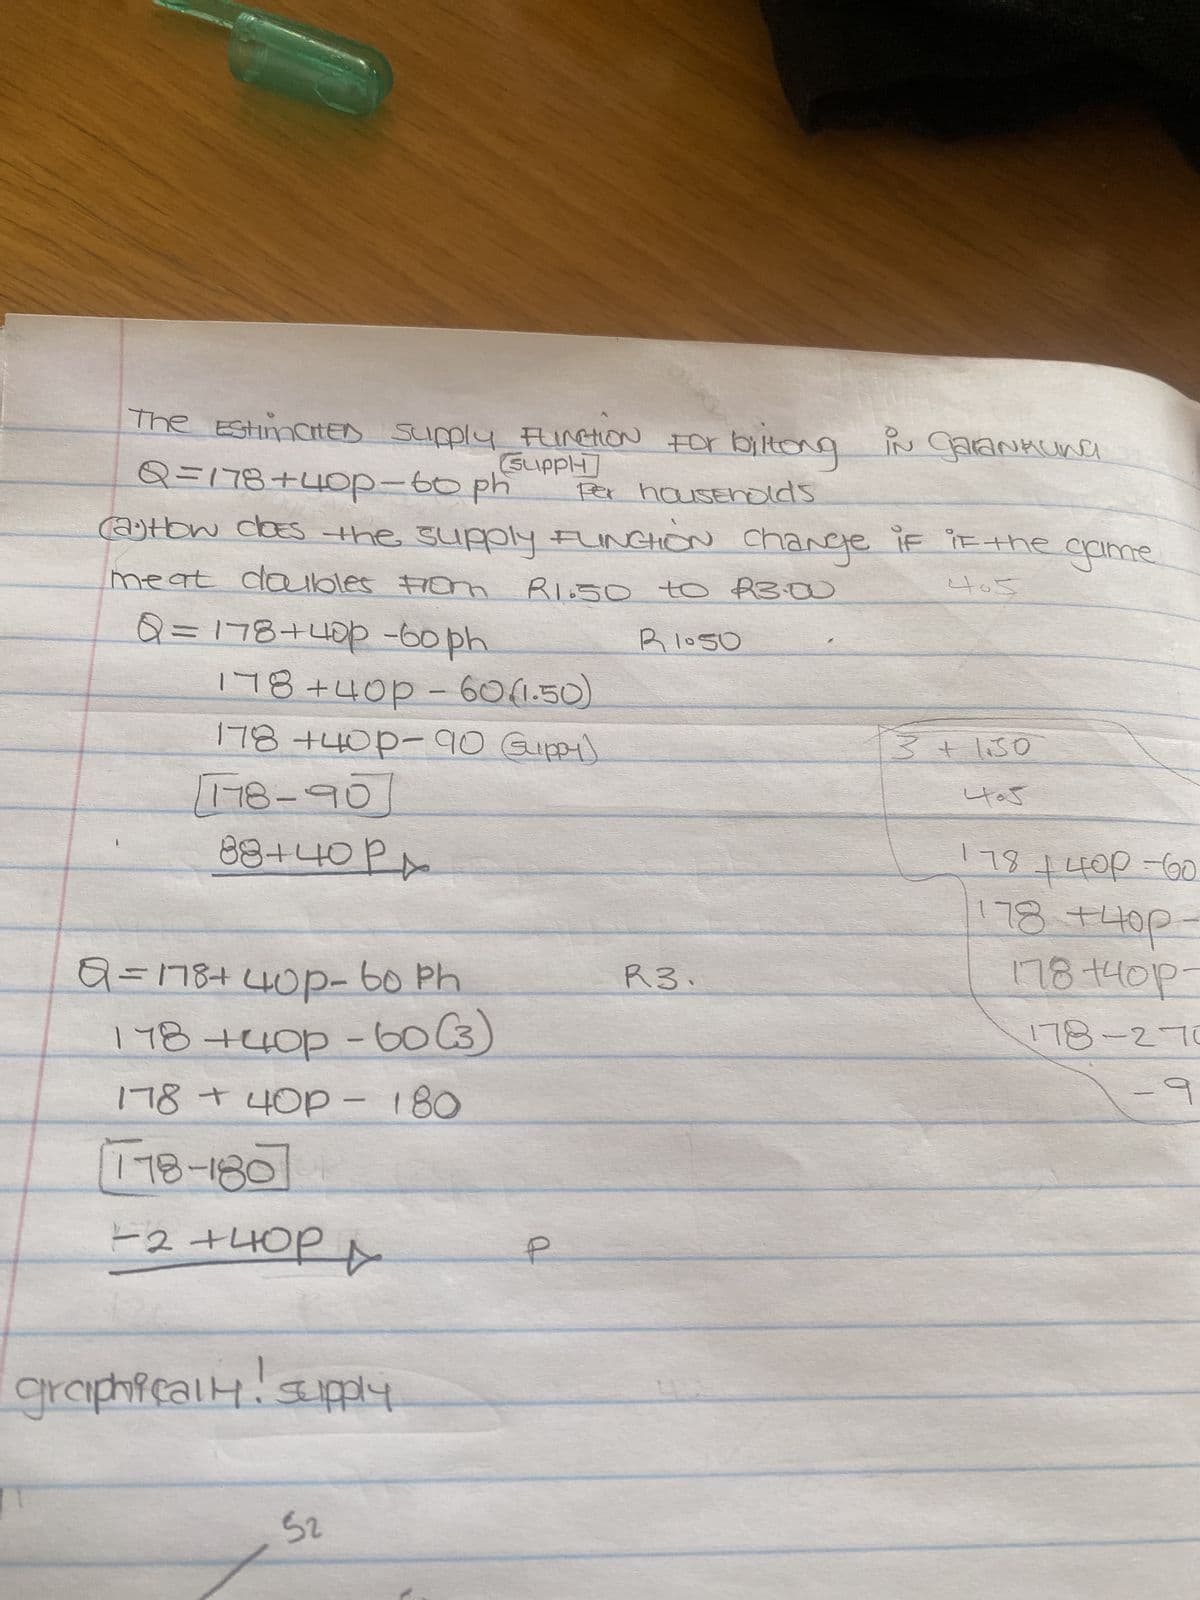 The Estimated supply Function For biltong in Garankuna
[supply]
Q=178+40p-60ph per households
(a) How does the supply Function change if if the game
meat doubles From R1.50 to R3.00
4.5
Q=178+40p-60ph R1.50
178+40p-60(1.50)
178+40p-90 (supply)
[178-90]
88+40P
3+1.50
4.5
178+40P-60
178+40p-
178+40p-
178-270
-9
Q=178+40p-60Ph R3.
178+40p-60(3)
178+40P-180
[178-180]
-2+40P
P
graphically! supply
S2